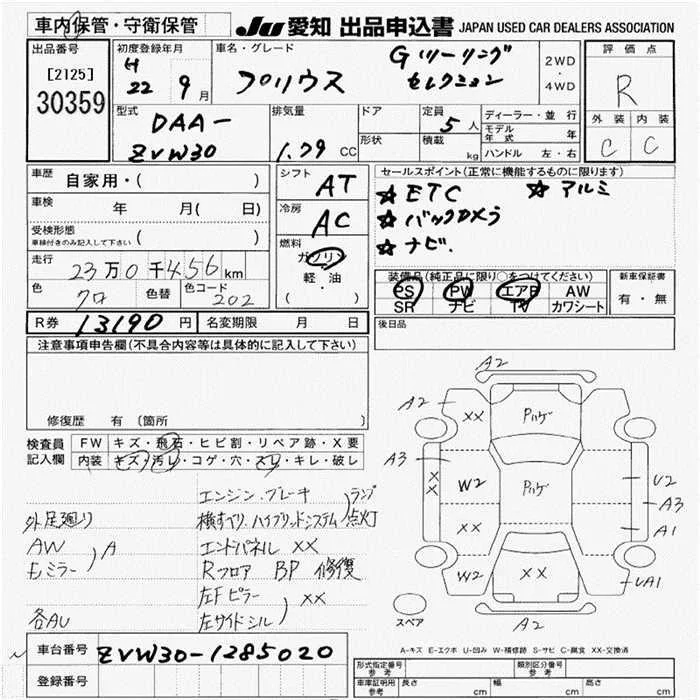 車内保管・守衛保管
JU 愛知 出品申込書 JAPAN USED CAR DEALERS ASSOCIATION
出品番号
[2125]
30359
初度登録年月
H
22 9月
車名・グレード
プリウス
Gツーリング
セレクション
2WD
・
4WD
評価点
R
外装 内装
C C
型式
DAA-
ZVW30
排気量
1.79 CC
ドア
形状
定員
5人
積載
kg
ディーラー・並行
モデル年式 年
ハンドル 左・右
車歴 自家用・( )
車検 年 月( 日)
受検形態
車検付きのみ記入して下さい ( )
走行 23万0千456km
色 クロ 色替 色コード 202
シフト
AT
冷房
AC
燃料
ガソリン
・
軽油
( )
セールスポイント(正常に機能するものに限ります)
★ETC ★アルミ
★バックカメラ
★ナビ.
装備品(純正品に限り○をつけてください)
PS PW エアB AW
SR ナビ TV カワシート
新車保証書
有・無
R券 13190円 名変期限 月 日
後日品
注意事項申告欄(不具合内容等は具体的に記入して下さい)
修復歴 有 〔箇所 〕
検査員記入欄
FW キズ・飛石・ヒビ割・リペア跡・X要
内装 キズ・汚レ・コゲ・穴・スレ・キレ・破レ
エンジン.ブレーキ
横すべり.ハイブリッドシステム
ランプ
点灯
外足廻り
AW
Eミラー
A
エンドパネル XX
Rフロア BP 修復
左Fピラー
左サイドシル
XX
各AU
A2
A2
XX
ハゲ
A3
XX
W2
ハゲ
U2
A3
XX
A1
W2
XX
UA1
A2
スペア
A-キズ E-エクボ U-凹み W-補修跡 S-サビ C-腐食 XX-交換済
車台番号 ZVW30-1285020
登録番号
形式指定番号
参考
類別区分番号
参考
車庫証明用
参考
長さ cm 幅 cm 高さ cm